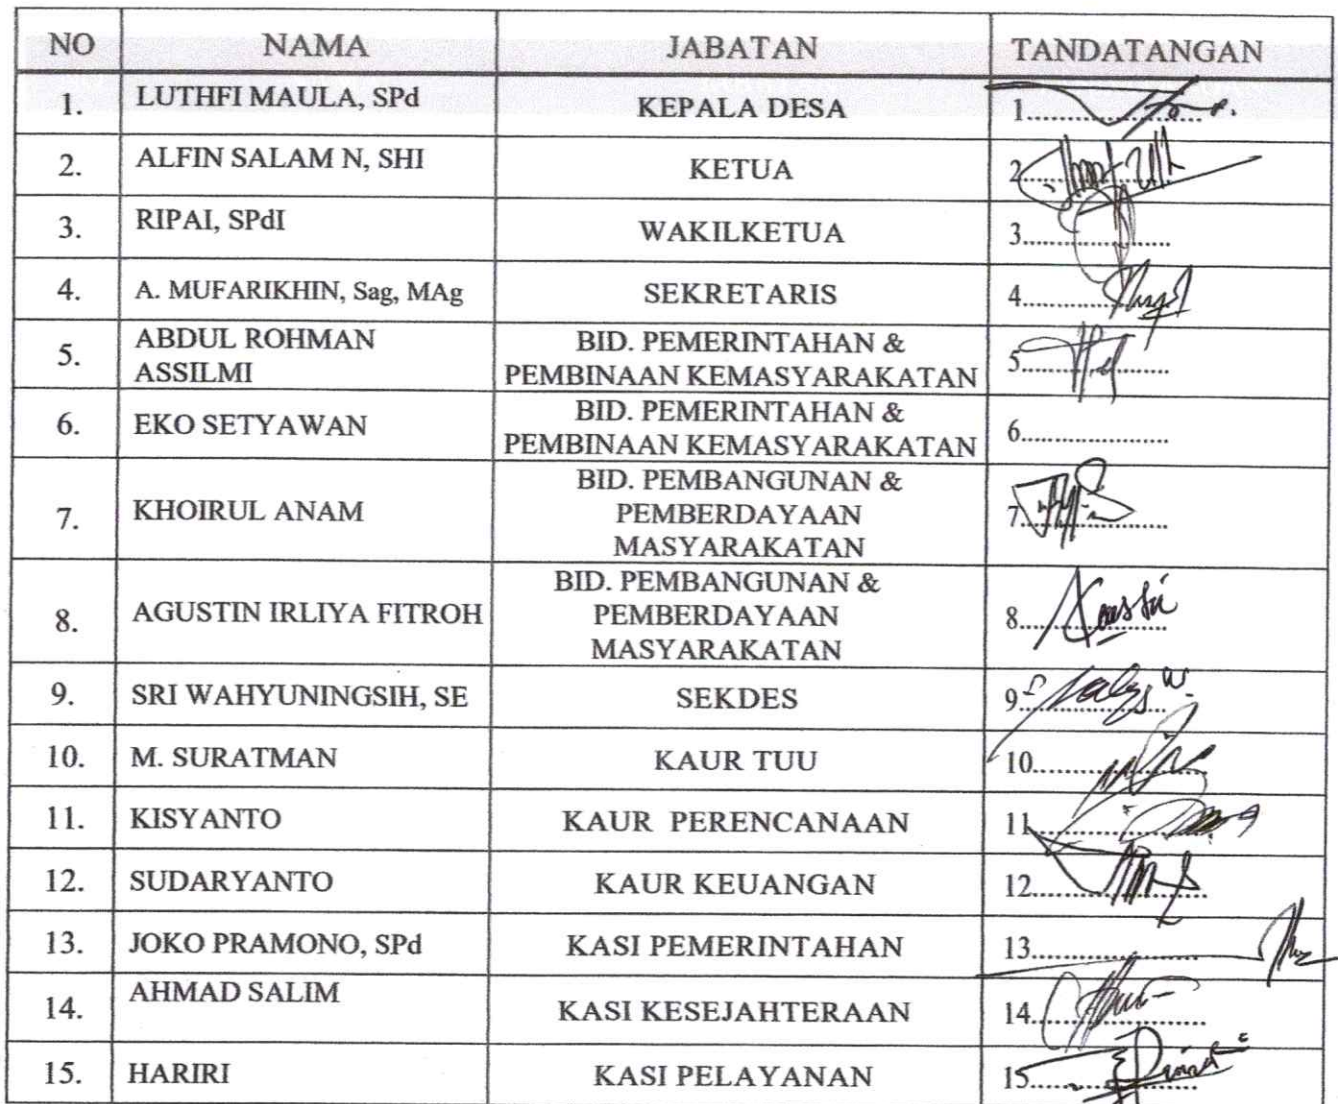 NO NAMA JABATAN TANDATANGAN
1. LUTHFI MAULA, SPd KEPALA DESA 1
2. ALFIN SALAM N, SHI KETUA 2
3. RIPAI, SPdI WAKILKETUA 3
4. A. MUFARIKHIN, Sag, MAg SEKRETARIS 4
5. ABDUL ROHMAN ASSILMI BID. PEMERINTAHAN & PEMBINAAN KEMASYARAKATAN 5
6. EKO SETYAWAN BID. PEMERINTAHAN & PEMBINAAN KEMASYARAKATAN 6
7. KHOIRUL ANAM BID. PEMBANGUNAN & PEMBERDAYAAN MASYARAKATAN 7
8. AGUSTIN IRLIYA FITROH BID. PEMBANGUNAN & PEMBERDAYAAN MASYARAKATAN 8
9. SRI WAHYUNINGSIH, SE SEKDES 9
10. M. SURATMAN KAUR TUU 10
11. KISYANTO KAUR PERENCANAAN 11
12. SUDARYANTO KAUR KEUANGAN 12
13. JOKO PRAMONO, SPd KASI PEMERINTAHAN 13
14. AHMAD SALIM KASI KESEJAHTERAAN 14
15. HARIRI KASI PELAYANAN 15